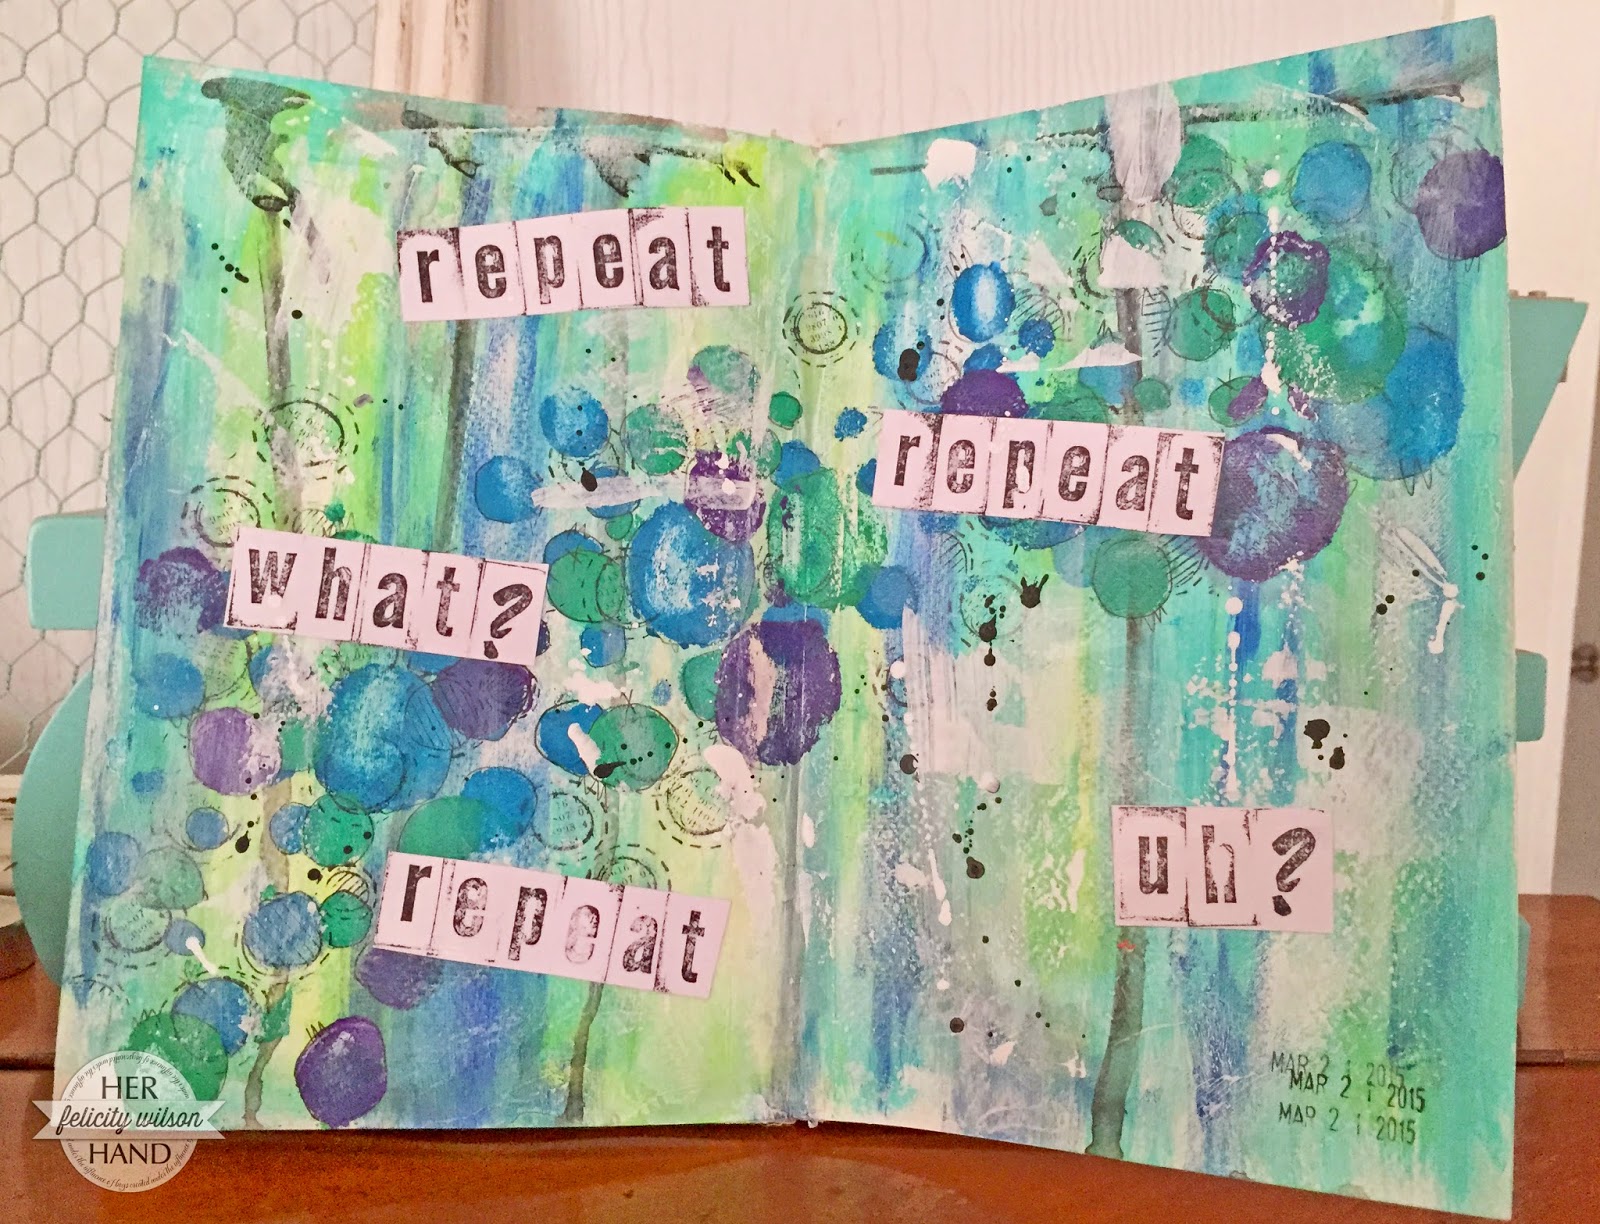 repeat
what?
repeat
repeat
uh?
MAR 2 1 2015
MAR 2 1 2015
MAR 2 1 2015
HER
felicity wilson
HAND